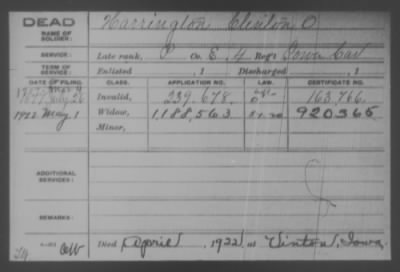 DEAD
NAME OF SOLDIER: Harrington Clinton O
SERVICE: Late rank, P Co. E, 4 Reg't Iowa Cav
TERM OF SERVICE: Enlisted 1 Discharged 1
DATE OF FILING. CLASS. APPLICATION NO. LAW. CERTIFICATE NO.
1877 July 26 Invalid, 239.678. 163.766.
1922 May 1 Widow, 1,188,563 920365
Minor,
ADDITIONAL SERVICES:
REMARKS:
Died April , 1922, at Vinton, Iowa,